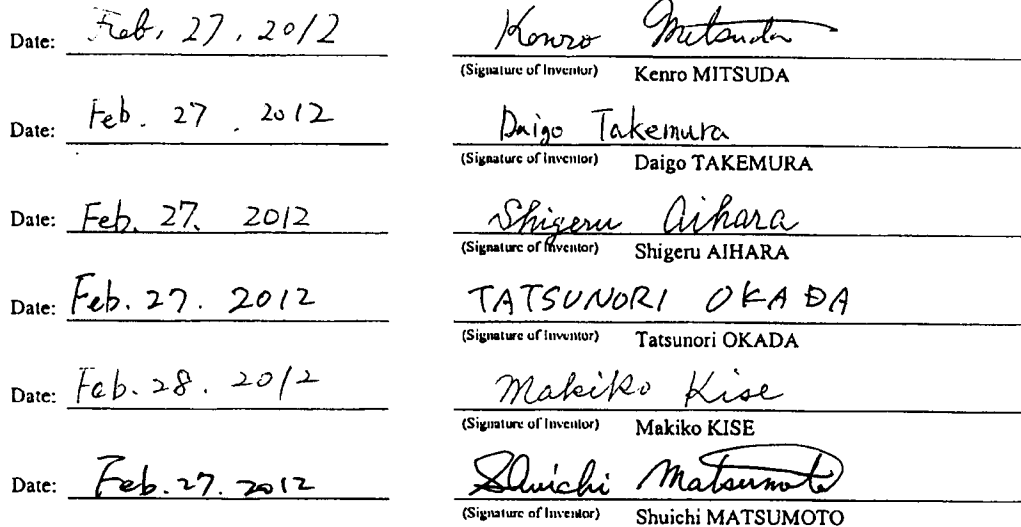 Date: Feb. 27, 2012 Kenro Mitsuda
(Signature of Inventor) Kenro MITSUDA
Date: Feb. 27. 2012 Daigo Takemura
(Signature of Inventor) Daigo TAKEMURA
Date: Feb. 27. 2012 Shigeru Aihara
(Signature of Inventor) Shigeru AIHARA
Date: Feb. 27. 2012 TATSUNORI OKADA
(Signature of Inventor) Tatsunori OKADA
Date: Feb. 28. 2012 Makiko Kise
(Signature of Inventor) Makiko KISE
Date: Feb. 27. 2012 Shuichi Matsumoto
(Signature of Inventor) Shuichi MATSUMOTO